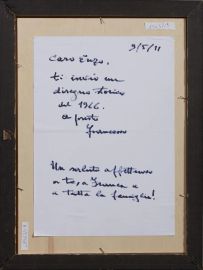 9/5/11
caro Enzo,
ti invio un
disegno storico
del 1966.
Francesco
Un saluto affettuoso
a te, a Franca e
a tutta la famiglia!